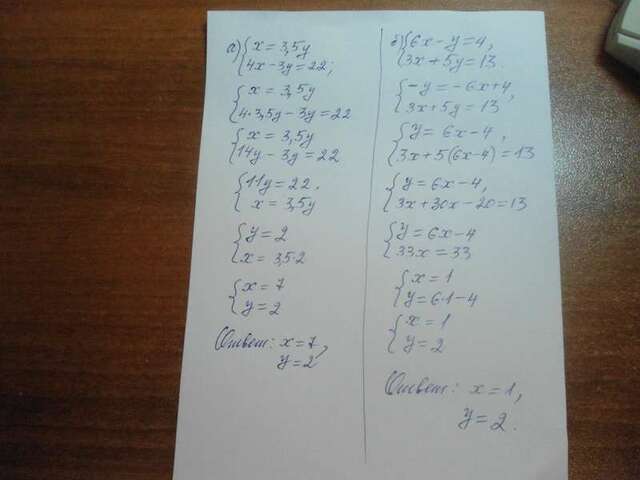 а) { x = 3,5y
4x - 3y = 22;
{ x = 3,5y
4·3,5y - 3y = 22
{ x = 3,5y
14y - 3y = 22
{ 11y = 22,
x = 3,5y
{ y = 2
x = 3,5·2
{ x = 7
y = 2
Ответ: x = 7,
y = 2
б) { 6x - y = 4,
3x + 5y = 13.
{ -y = -6x + 4,
3x + 5y = 13
{ y = 6x - 4,
3x + 5(6x - 4) = 13
{ y = 6x - 4,
3x + 30x - 20 = 13
{ y = 6x - 4
33x = 33
{ x = 1
y = 6·1 - 4
{ x = 1
y = 2
Ответ: x = 1,
y = 2.